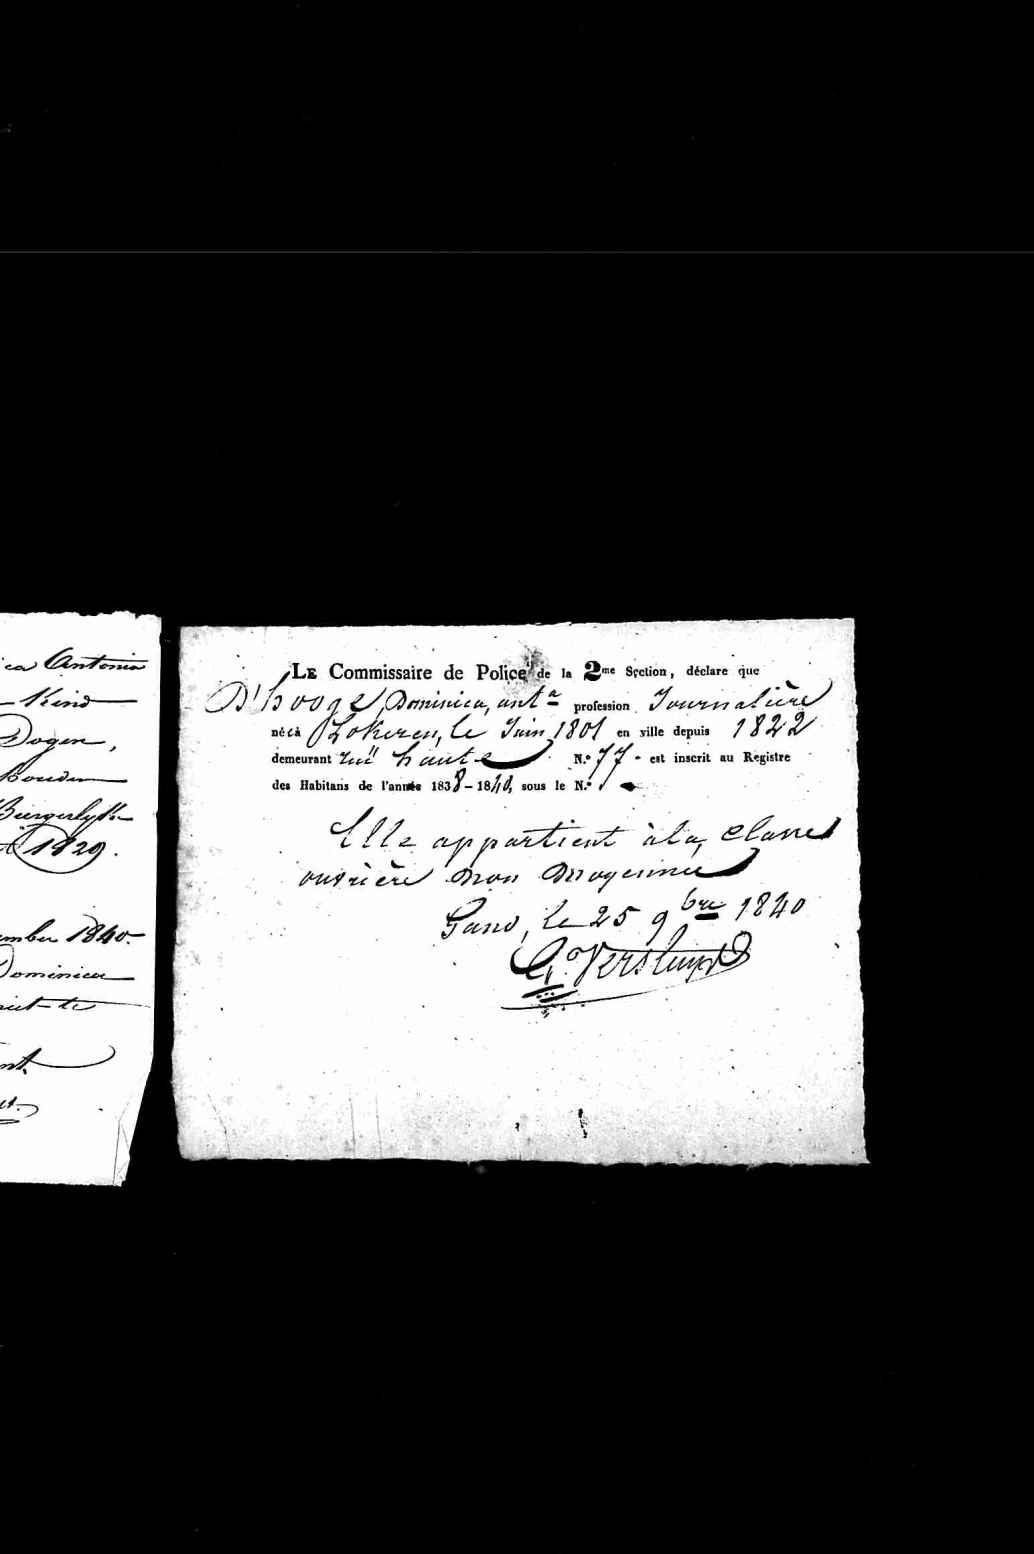 Antonia
Kind
Dogen,
Burgerlyke
1829.
ember 1840.
Dominica
LE Commissaire de Police de la 2me Section, déclare que
D'hooge, Dominica, anta profession Journalière
né à Lokeren, le Juin 1801 en ville depuis 1822
demeurant rue haute N.º 77 - est inscrit au Registre
des Habitans de l'année 1838-1840, sous le N.º
Elle appartient à la, Classe
ouvrière non moyenne
Gand, le 25 9bre 1840